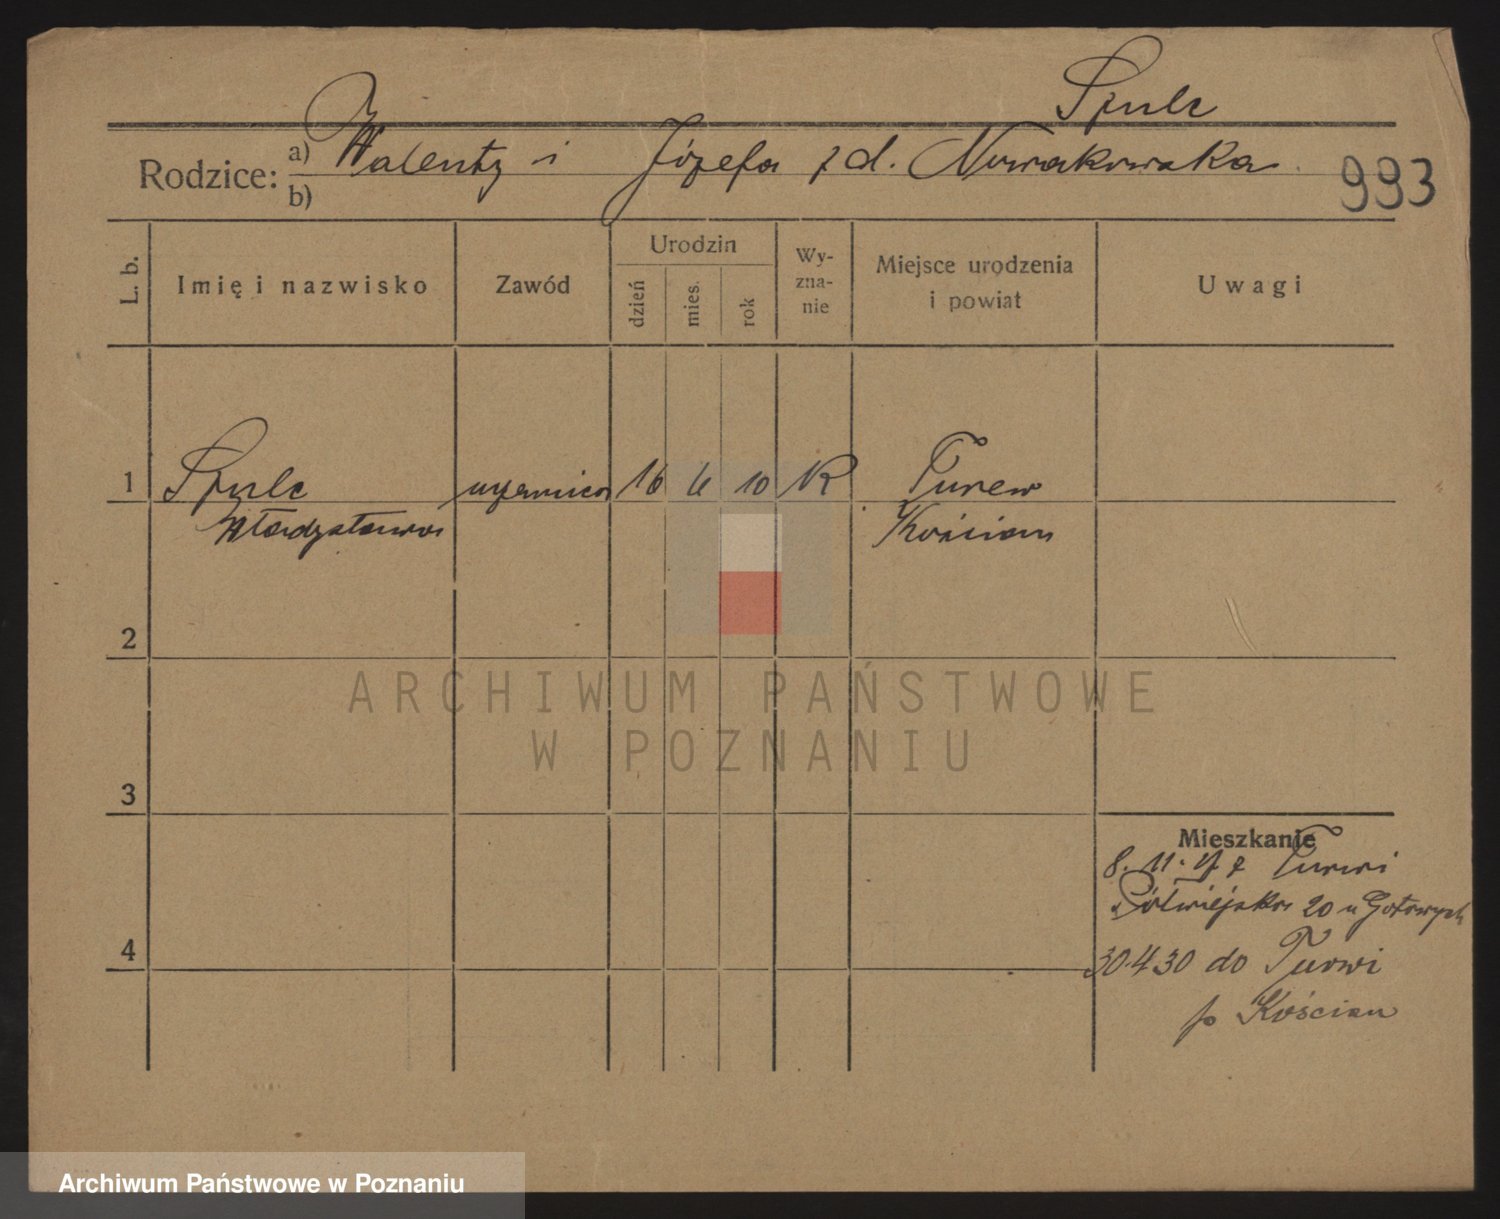 Szulc
Rodzice: a) Walenty i Józefa z d. Nowakowska
b)
993
L. b.
Imię i nazwisko
Zawód
Urodzin
dzień
mies.
rok
Wy-
zna-
nie
Miejsce urodzenia
i powiat
Uwagi
1 Szulc uczennica 16 4 10 K Turew
Władysława Kościan
2
3
4
Mieszkanie
8. 11. z Turwi
Półwiejska 20 u
30.4.30 do Turwi
p Kościan
ARCHIWUM PAŃSTWOWE
W POZNANIU
Archiwum Państwowe w Poznaniu